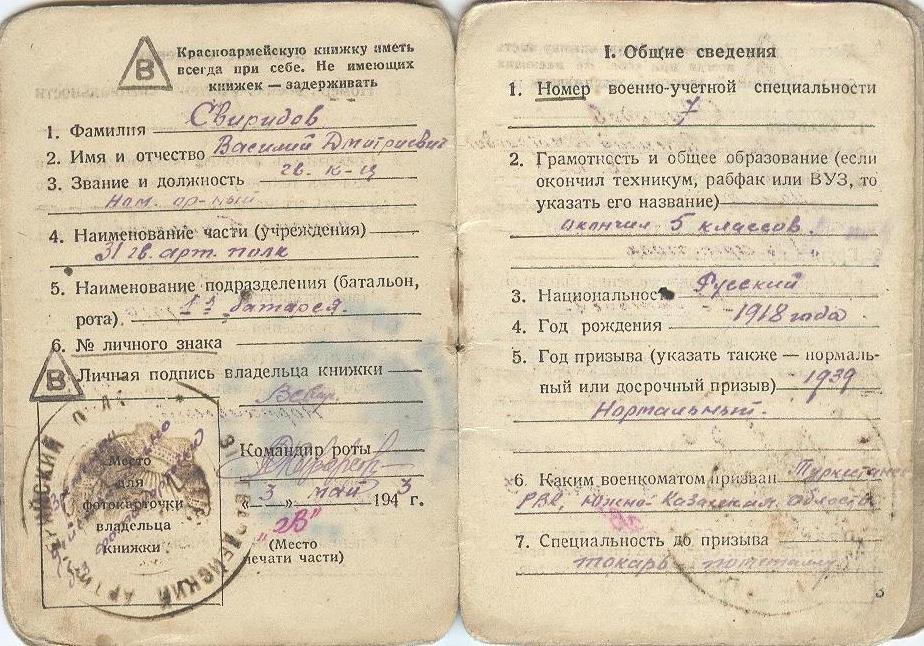 В
Красноармейскую книжку иметь
всегда при себе. Не имеющих
книжек — задерживать
1. Фамилия Свиридов
2. Имя и отчество Василий Дмитриевич
3. Звание и должность гв. к-ц
Нам. ор-ный
4. Наименование части (учреждения)
31 гв. арт. полк
5. Наименование подразделения (батальон,
рота). 1ая батарея.
6. № личного знака
В
Личная подпись владельца книжки
Место
для
фотокарточки
владельца
книжки
Командир роты
„3" май 1943 г.
"2В"
(Место
печати части)
I. Общие сведения
1. Номер военно-учетной специальности
7
2. Грамотность и общее образование (если
окончил техникум, рабфак или ВУЗ, то
указать его название)
окончил 5 классов.
3. Национальность Русский
4. Год рождения 1918 года
5. Год призыва (указать также — нормаль-
ный или досрочный призыв) 1939
Нормальный.
6. Каким военкоматом призван
РВК, Южно-Казахская область
7. Специальность до призыва
токарь по металлу
3